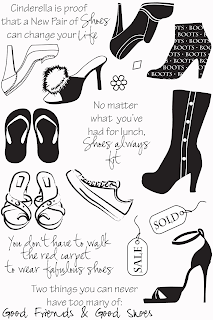 Cinderella is proof
that a New Pair of Shoes
can change your Life
BOOTS • BOOTS
BOOTS • BOOTS
BOOTS • BOOTS
No matter
what you've
had for lunch,
Shoes always
fit
SOLD
SALE
You don't have to walk
the red carpet
to wear fabulous shoes
Two things you can never
have too many of:
Good Friends & Good Shoes